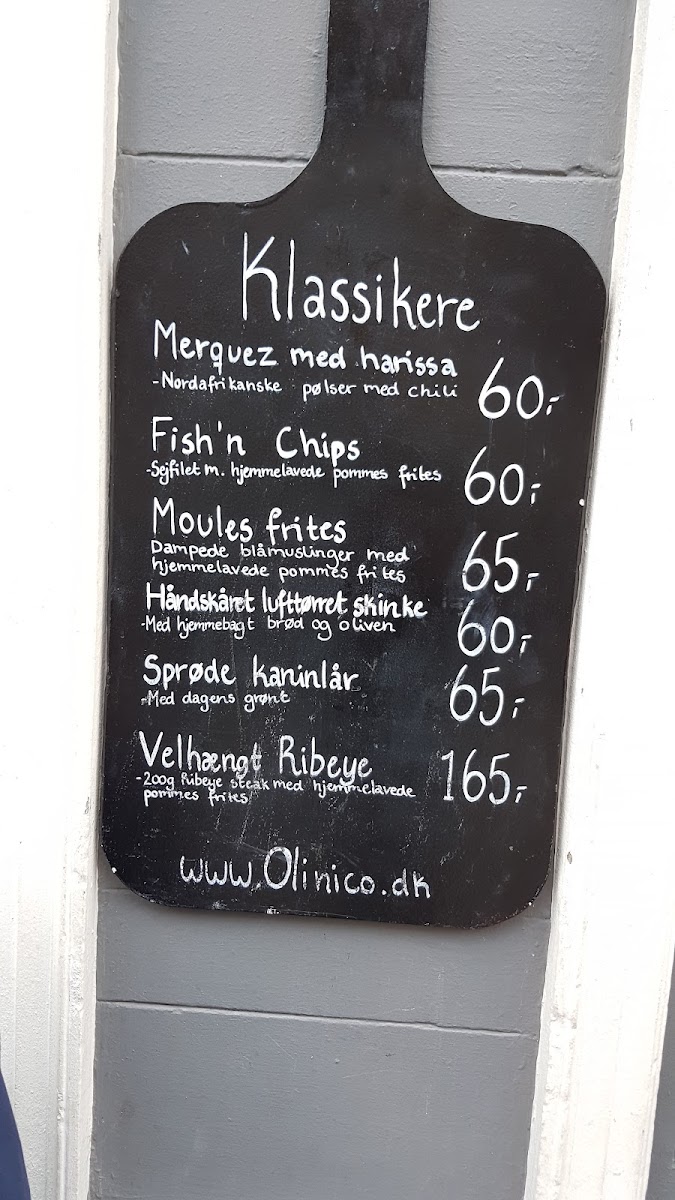 Klassikere
Merquez med harissa
-Nordafrikanske pølser med chili 60,-
Fish'n Chips
-Sejfilet m. hjemmelavede pommes frites 60,-
Moules frites
Dampede blåmuslinger med
hjemmelavede pommes frites 65,-
Håndskåret lufttørret skinke
-Med hjemmebagt brød og oliven 60,-
Sprøde kaninlår
-Med dagens grønt 65,-
Velhængt Ribeye 165,-
-200g Ribeye steak med hjemmelavede
pommes frites
www.Olinico.dk